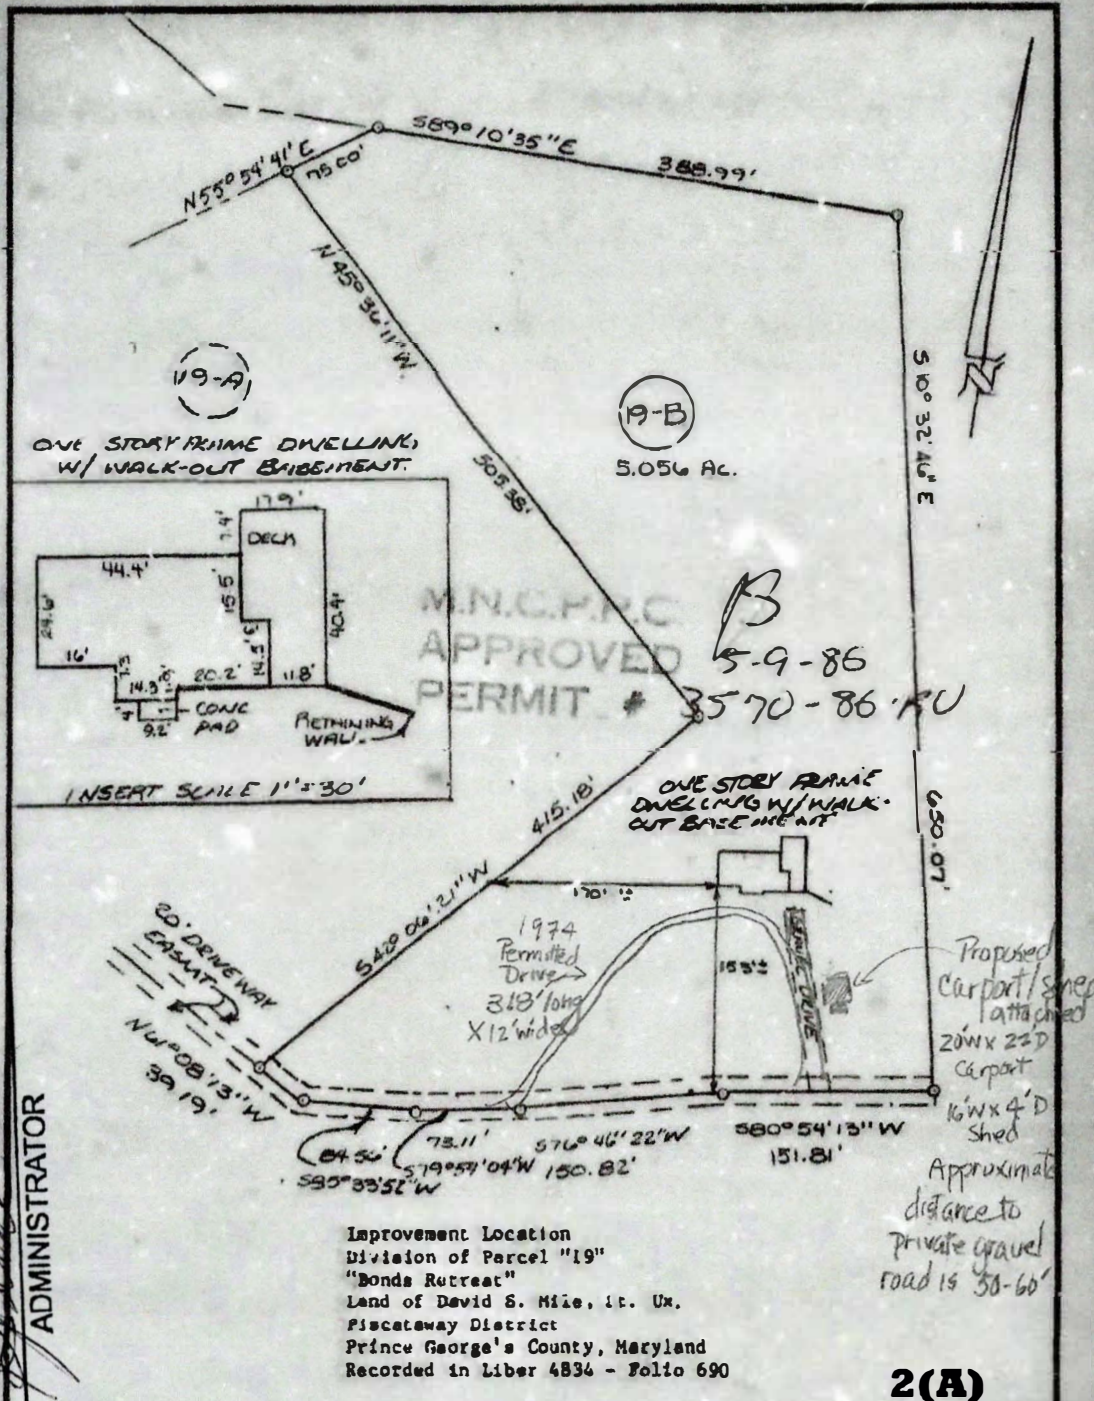 S89°10'35"E
388.99'
N55°54'41"E
75.00'
N45°36'11"W
505.38'
S10°32'46"E
19-A
19-B
5.056 AC.
ONE STORY FRAME DWELLING
W/ WALK-OUT BASEMENT.
17.9'
7.4'
DECK
44.4'
15.5'
24.6'
40.4'
16'
7.3
14.3'
20.2'
14.5'
11.8'
CONC
PAD
9.2'
RETAINING
WALL
INSERT SCALE 1"=30'
M.N.C.P.P.C.
APPROVED
PERMIT #
5-9-86
3570-86-RU
ONE STORY FRAME
DWELLING W/WALK-
OUT BASEMENT
650.07'
415.18'
S42°06'21"W
170'±
153'±
1974
Permitted
Drive
318' long
X12' wide
DRIVE
Proposed
Carport/Shed
attached
20'W x 22'D
Carport
16'W x 4'D
Shed
Approximate
distance to
private gravel
road is 50-60'
20' DRIVEWAY
EASMT
N61°08'13"W
39.19'
84.56'
S85°33'52"W
73.11'
S79°57'04"W
S76°46'22"W
150.82'
S80°54'13"W
151.81'
ADMINISTRATOR
Improvement Location
Division of Parcel "19"
"Bonds Retreat"
Land of David S. Mile, It. Ux.
Piscataway District
Prince George's County, Maryland
Recorded in Liber 4834 - Folio 690
2(A)